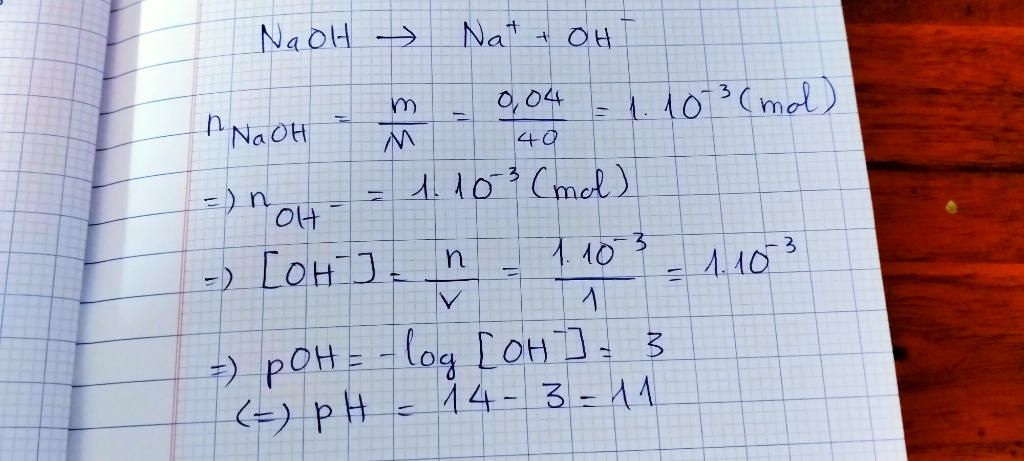 NaOH → Na⁺ + OH⁻
n NaOH = m/M = 0,04/40 = 1.10⁻³ (mol)
=) n OH⁻ = 1.10⁻³ (mol)
=) [OH⁻] = n/V = 1.10⁻³/1 = 1.10⁻³
=) pOH = -log [OH⁻] = 3
(=) pH = 14 - 3 = 11